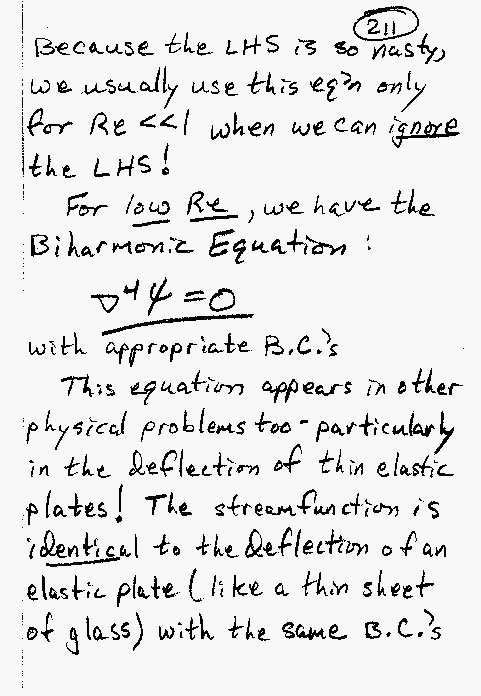 211
Because the LHS is so nasty,
we usually use this eq'n only
for Re <<1 when we can ignore
the LHS!
For low Re, we have the
Biharmonic Equation:
∇⁴ψ = 0
with appropriate B.C.'s
This equation appears in other
physical problems too - particularly
in the deflection of thin elastic
plates! The streamfunction is
identical to the deflection of an
elastic plate (like a thin sheet
of glass) with the same B.C.'s